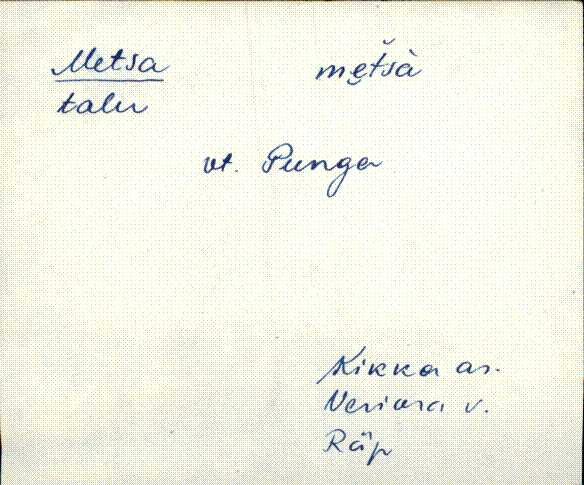 Metsa mẹt̆śà
talu
vt. Punga
Kikka as.
Veriora v.
Räp